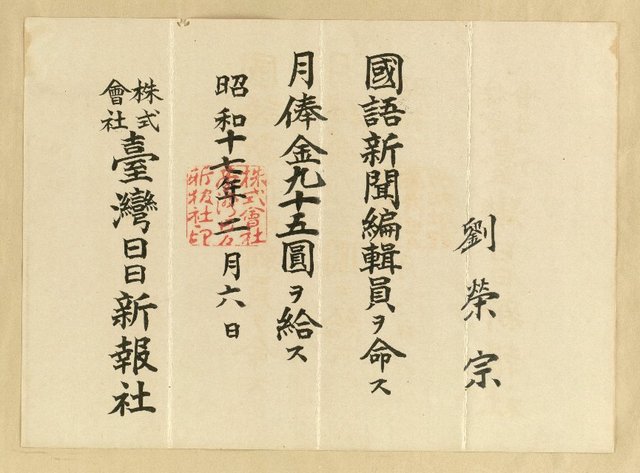 劉榮宗
國語新聞編輯員ヲ命ス
月俸金九十五圓ヲ給ス
昭和十七年二月六日
株式會社臺灣日日新報社
株式會社
新報社印